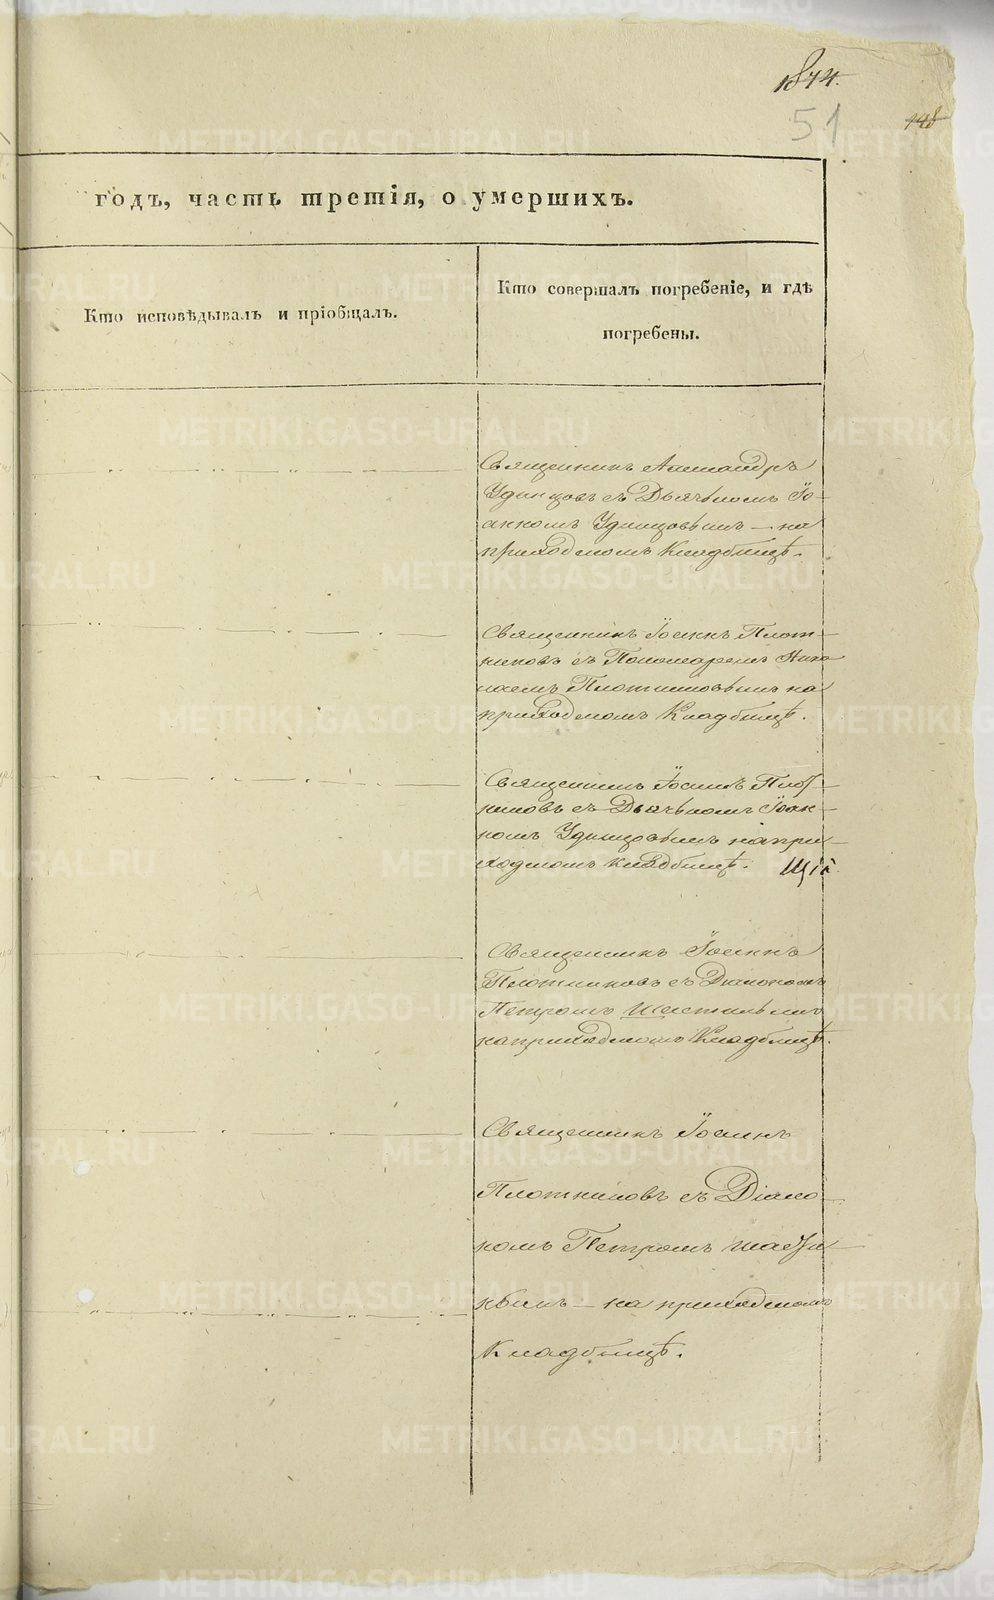 1844.
51
148
годъ, часть третія, о умершихъ.
Кто исповѣдывалъ и пріобщалъ.
Кто совершалъ погребеніе, и гдѣ
погребены.
Священникъ Александръ
Удинцовъ съ Дьячкомъ Іо-
анномъ Удинцовымъ — на
приходскомъ Кладбищѣ.
Священникъ Іоаннъ Плот-
никовъ съ Пономаремъ Нико
лаемъ Плотниковымъ на
приходскомъ Кладбищѣ.
Священникъ Іоаннъ Плот-
никовъ съ Дьячкомъ Іоан-
номъ Удинцовымъ на при-
ходскомъ кладбищѣ.
Священникъ Іоаннъ
Плотниковъ съ Діакономъ
Петромъ
на приходскомъ Кладбищѣ.
Священникъ Іоаннъ
Плотниковъ съ Діако-
номъ Петромъ
на приходскомъ
Кладбищѣ.
METRIKI.GASO-URAL.RU